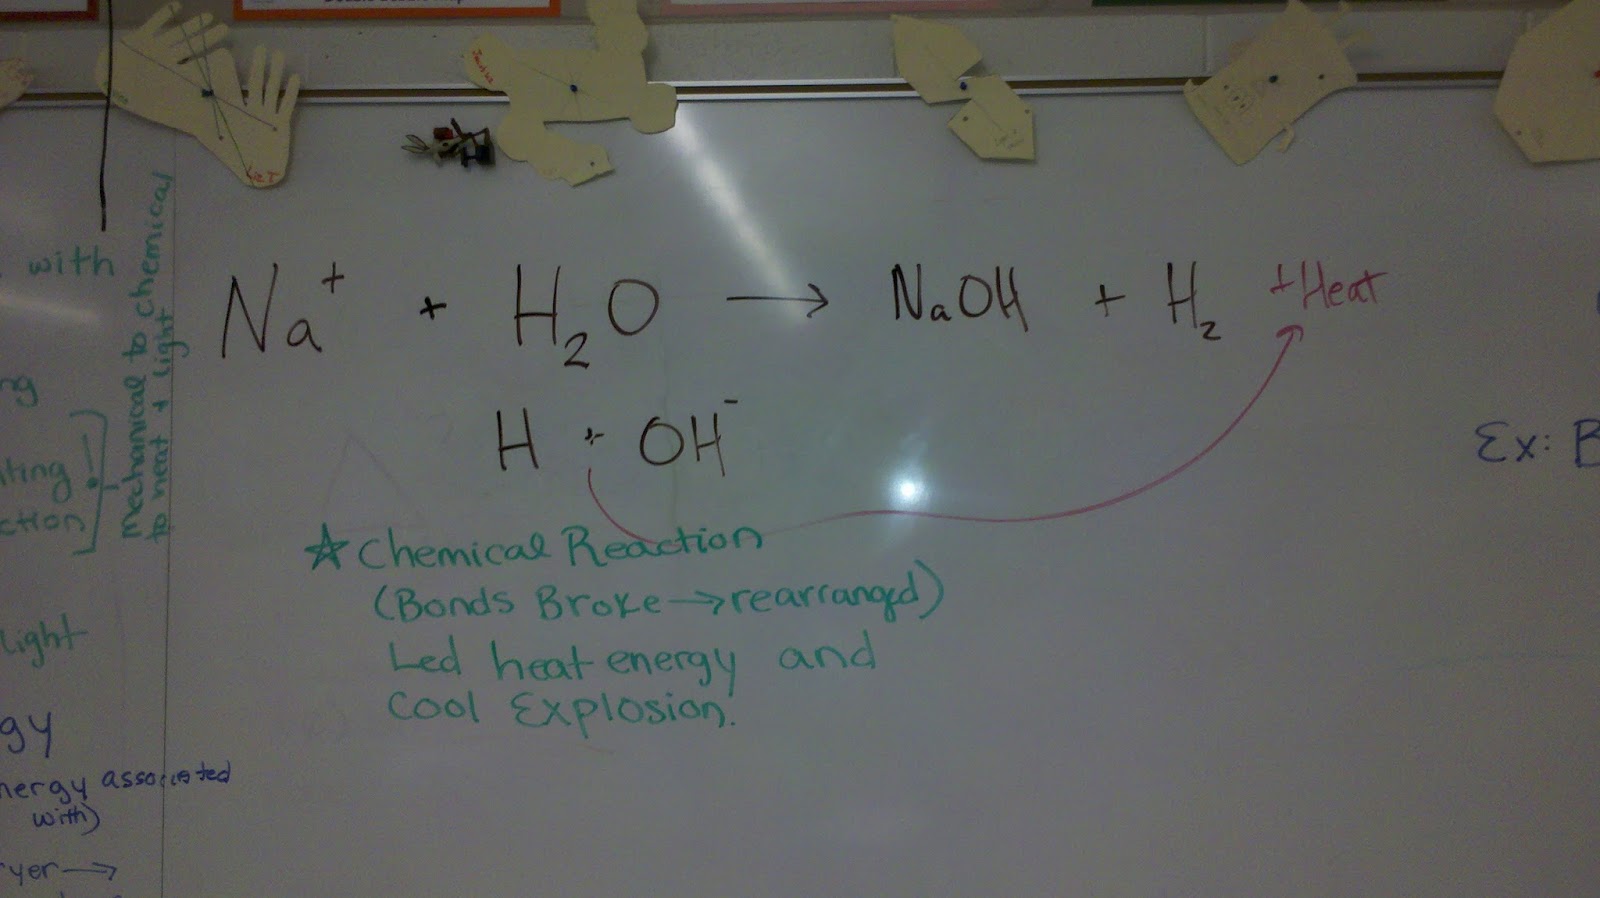 with
ng
ting
ction
Mechanical to chemical
to heat + light
light
gy
nergy associated
with)
ryer →
Na⁺ + H₂O → NaOH + H₂ + Heat
H + OH⁻
☆ Chemical Reaction
(Bonds Broke → rearranged)
Led heat energy and
Cool Explosion.
Ex: B